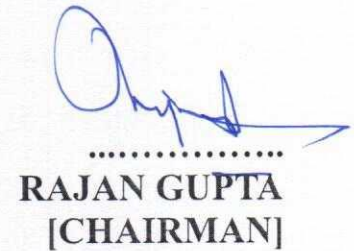 ..................
RAJAN GUPTA
[CHAIRMAN]